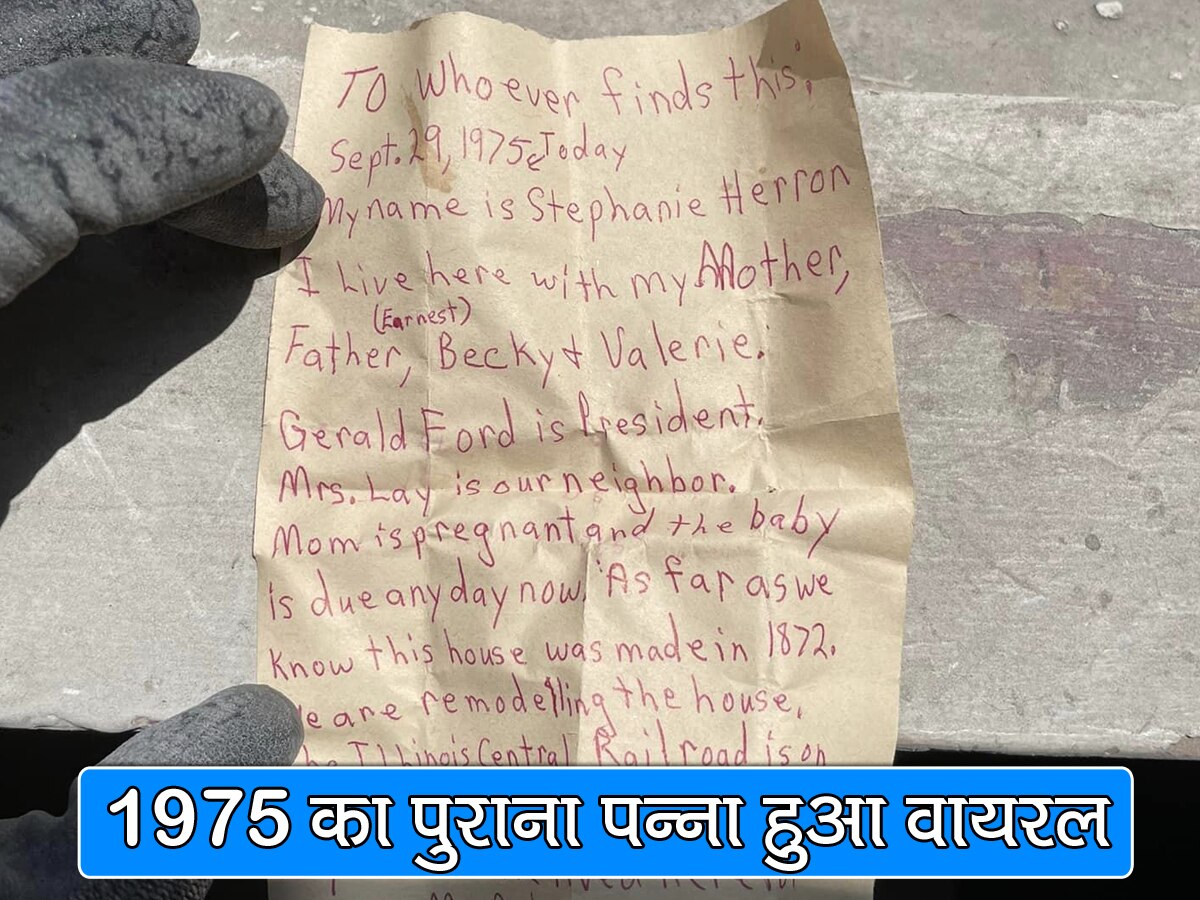 To Whoever finds this,
Sept. 29, 1975 Today
My name is Stephanie Herron
I Live here with my Mother,
(Earnest)
Father, Becky & Valerie.
Gerald Ford is President.
Mrs. Lay is our neighbor.
Mom is pregnant and the baby
is due any day now. As far as we
know this house was made in 1872.
We are remodelling the house.
The Illinois Central Railroad is on
1975 का पुराना पन्ना हुआ वायरल